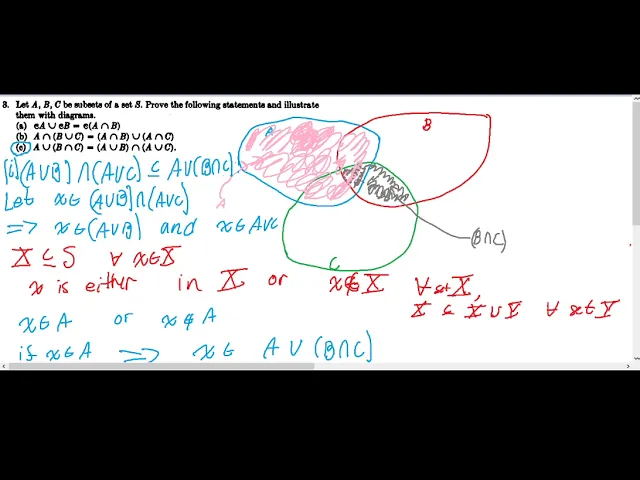 3. Let A, B, C be subsets of a set S. Prove the following statements and illustrate
them with diagrams.
(a) 𝒞A ∪ 𝒞B = 𝒞(A ∩ B)
(b) A ∩ (B ∪ C) = (A ∩ B) ∪ (A ∩ C)
(c) A ∪ (B ∩ C) = (A ∪ B) ∩ (A ∪ C).
(i) (A∪B) ∩ (A∪C) ⊆ A∪(B∩C)
Let x∈ (A∪B)∩(A∪C)
⟹ x∈(A∪B) and x∈A∪C
X ⊆ S ∀ x∈X
x is either in X or x∉X ∀ set X,
X ⊆ X ∪ Y ∀ set Y
x∈A or x∉A
if x∈A ⟹ x∈ A ∪ (B∩C)
A
B
C
A
(B∩C)